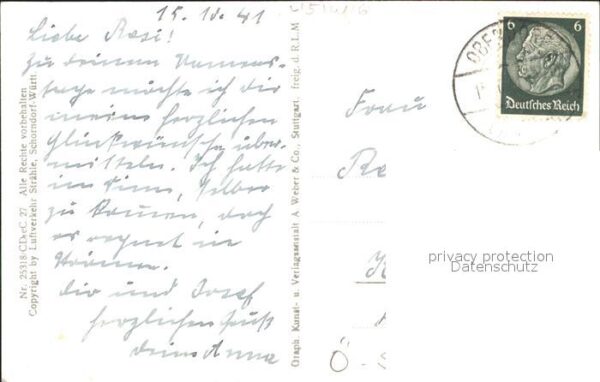 15. 10. 41
Liebe Resi!
Zu deinem Namens-
tage möchte ich dir
meine herzlichen
Glückwünsche über-
mitteln. Ich hatte
im Sinn, selber
zu kommen, doch
es regnet in
Strömen.
Dir und Josef
herzlichen Gruß
deine Anna
Nr. 25318-CDkeC. 27 Alle Rechte vorbehalten
Copyright by Luftverkehr Strähle, Schorndorf-Württ.
Graph. Kunst- u. Verlagsanstalt A. Weber & Co., Stuttgart. freig. d. R.L.M
Frau
6 6
Deutsches Reich
privacy protection
Datenschutz